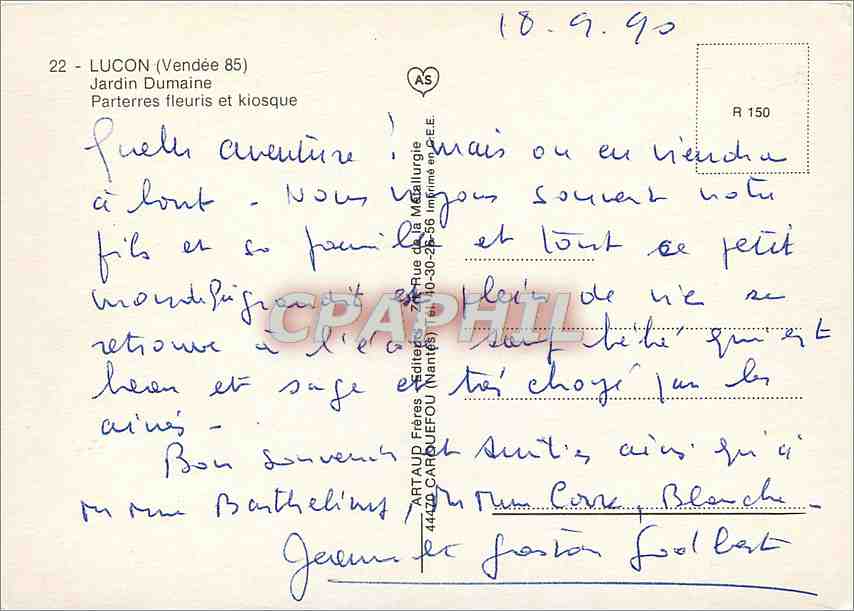 18.9.90
22 - LUCON (Vendée 85)
Jardin Dumaine
Parterres fleuris et kiosque
AS
R 150
ARTAUD Frères - Editeurs - Rue de la Métallurgie
44470 CARQUEFOU (Nantes) Tél. 40-30-28-56 Imprimé en C.E.E.
CPAPHIL
Quelle aventure ! mais on en viendra
à bout - Nous voyons souvent notre
fils et sa famille et tout ce petit
monde qui grandit et plein de vie se
retrouve à l'école sauf bébé qui est
beau et sage et très choyé par les
ainés -
Bon souvenir et amitiés ainsi qu'à
Blanche -
Jeanne et Gaston